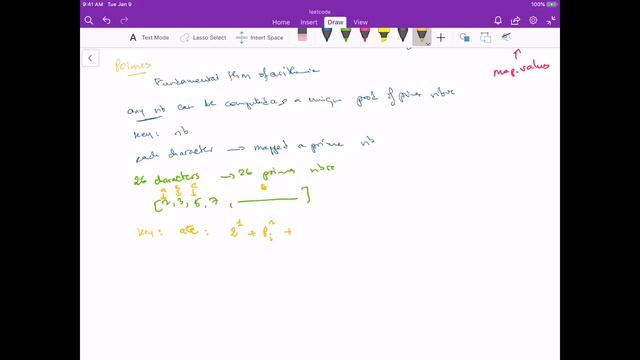 9:41 AM Tue Jan 9
100%
leetcode
Home Insert Draw View
Text Mode Lasso Select Insert Space
Primes
map.values
Fundamental thm of arithmic
any nb can be computed as a unique prod of primes nbre
key: nb
each character → mapped a prime nb
26 characters → 26 primes nbre
a b c
[2, 3, 5, 7, ]
key: ate: 2^1 + P_i^2 +